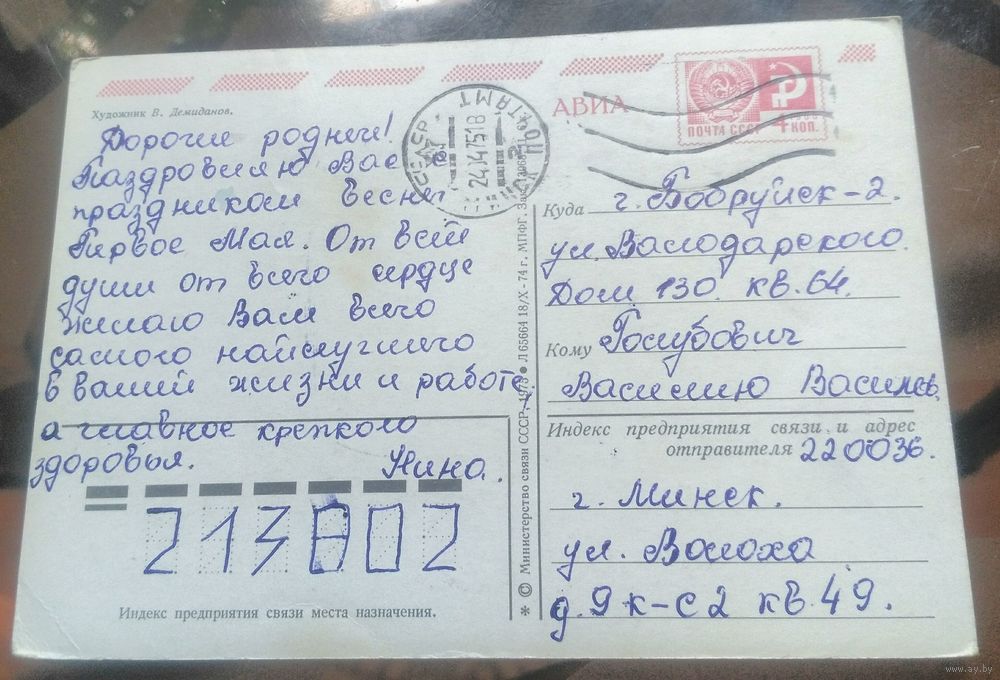 Художник В. Демиданов.
АВИА
ПОЧТА СССР 4 КОП.
24.04.75 18
Дорогие родные!
Паздровляю Вас
праздником весны
Первое Мая. От всей
души от всего сердце
желаю Вам всего
самого найлучшего
в вашей жизни и работе,
а главное крепкого
здоровья. Нина.
213802
Индекс предприятия связи места назначения.
* © Министерство связи СССР, 1975 ● Л 65664 18/X-74 г. МПФГ.
Куда г. Бобруйск-2.
ул. Валодарского.
Дом 130. кв. 64.
Кому Голубович
Василию Васильев.
Индекс предприятия связи и адрес
отправителя 220036.
г. Минск.
ул. Волоха
д. 9 к-с 2 кв. 49.
www.ay.by